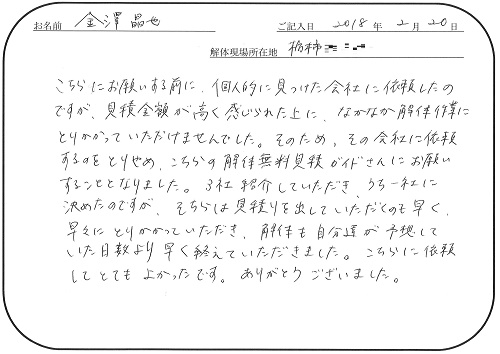 お名前 金澤 晶也 ご記入日 2018年 2月 20日
解体現場所在地 栃木
こちらにお願いする前に、個人的に見つけた会社に依頼したの
ですが、見積金額が高く感じられた上に、なかなか解体作業に
とりかかっていただけませんでした。そのため、その会社に依頼
するのをとりやめ、こちらの解体無料見積ガイドさんにお願い
することとなりました。3社紹介していただき、うち一社に
決めたのですが、そちらは見積りを出していただくのも早く、
早々にとりかかっていただき、解体も自分達が予想して
いた日数より早く終えていただきました。こちらに依頼
してとてもよかったです。ありがとうございました。